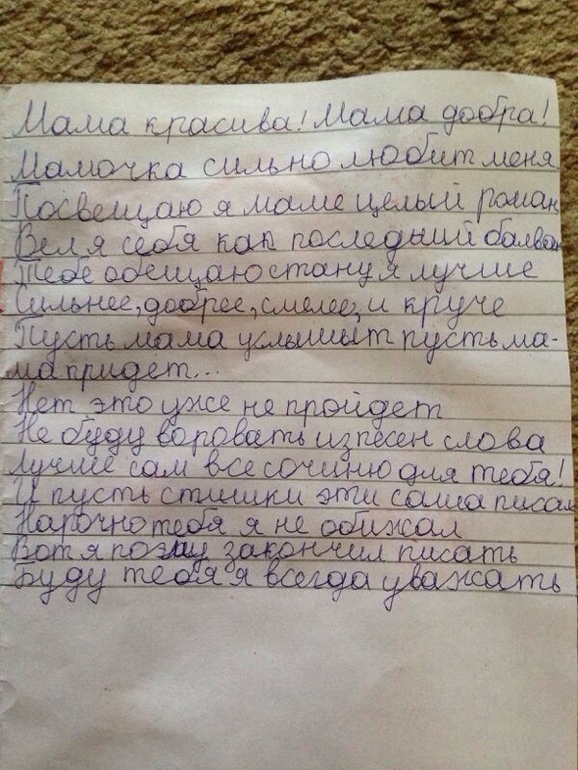 Мама красива! Мама добра!
Мамочка сильно любит меня
Посвещаю я маме целый роман
Вел я себя как последьший балван
Тебе обещаю стану я лучше
Сильнее, добрее, смелее, и круче
Пусть мама услышыт пусть ма-
ма придет...
Нет это уже не пройдет
Не буду воровать из песен слова
Лучше сам все сочиню для тебя!
И пусть стишки эти саша писал
Нарочно тебя я не обижал
Вот я поэму закончил писать
Буду тебя я всегда уважать